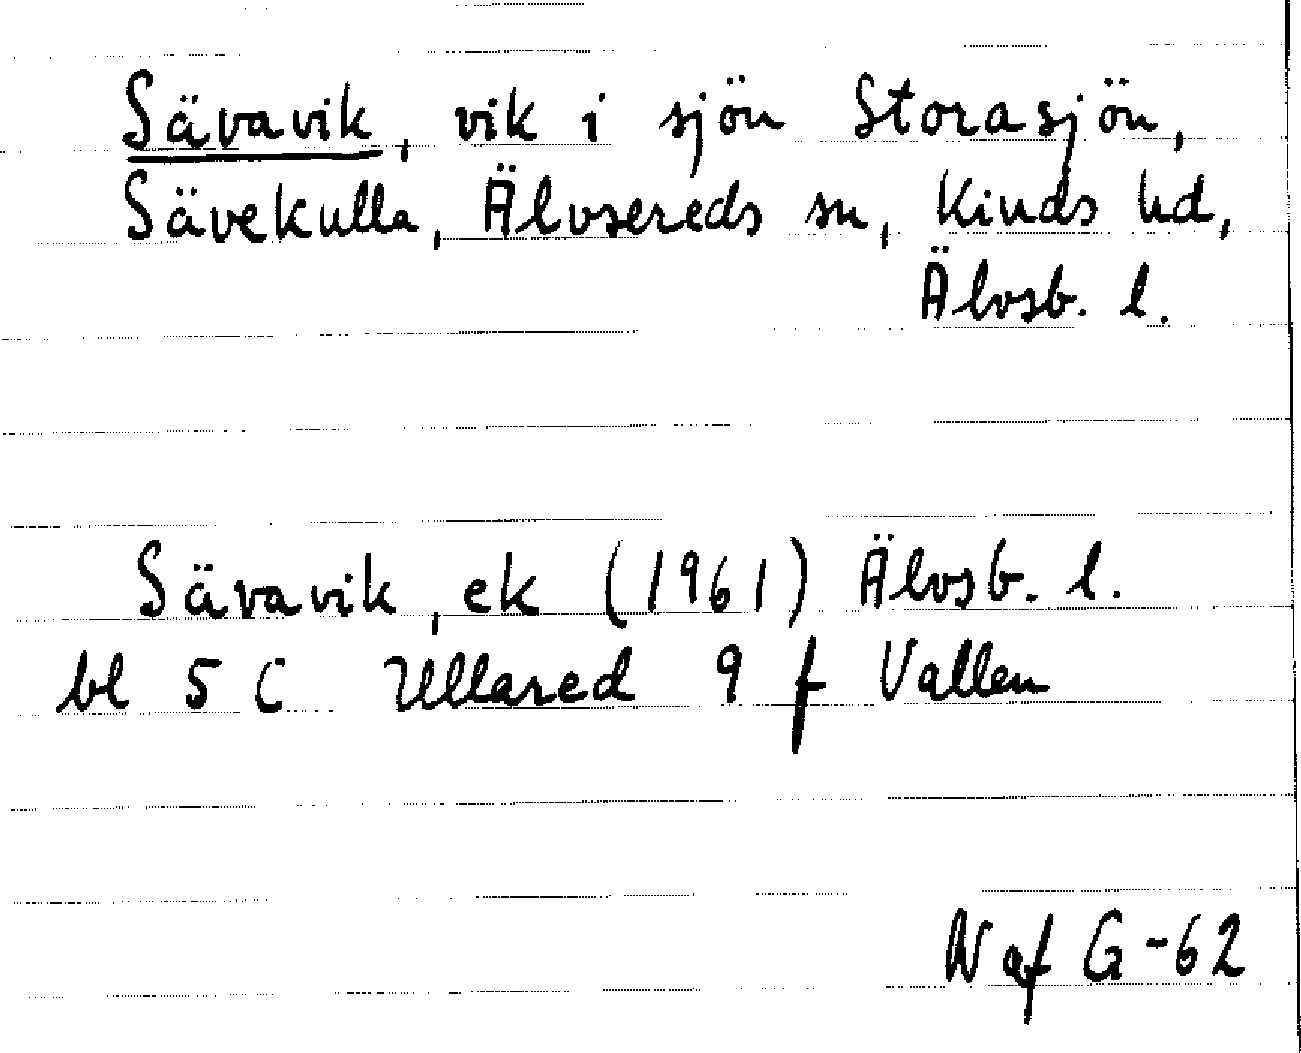 Sävavik, vik i sjön Storasjön,
Sävekulla, Älvsereds sn, Kinds hd,
Älvsb. l.
Sävavik, ek (1961) Älvsb. l.
bl 5 C Ullared 9 f Vallen
N af G-62